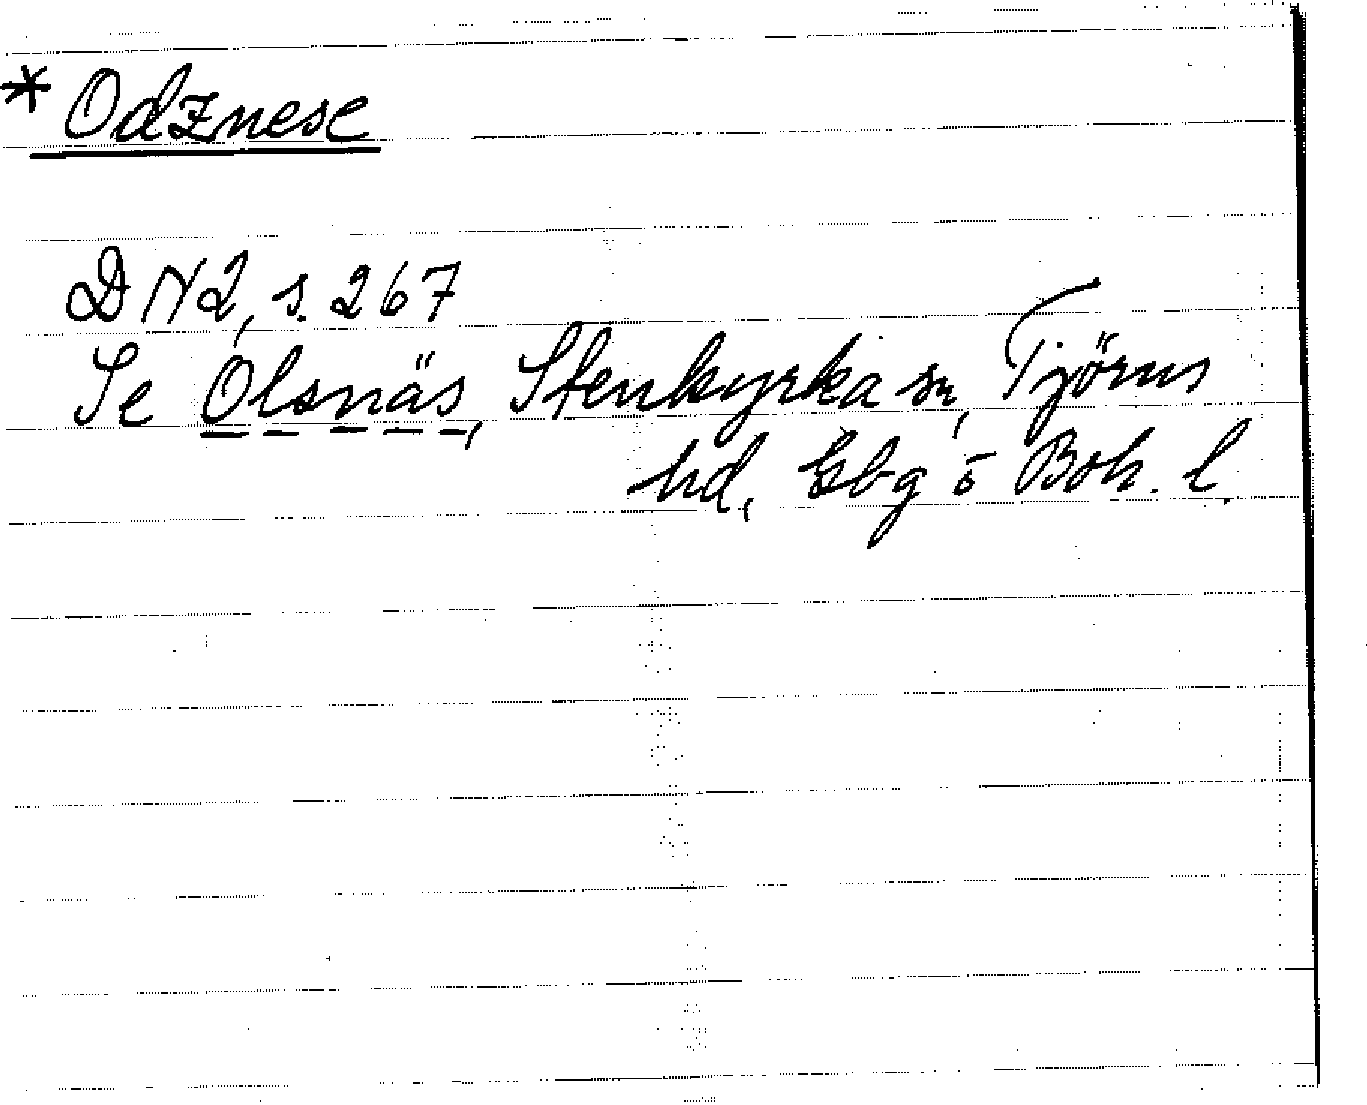 * Odznese
DN2, s. 267
Se Olsnäs, Stenkyrka sn, Tjörns
hd, Gbg o Boh. l.